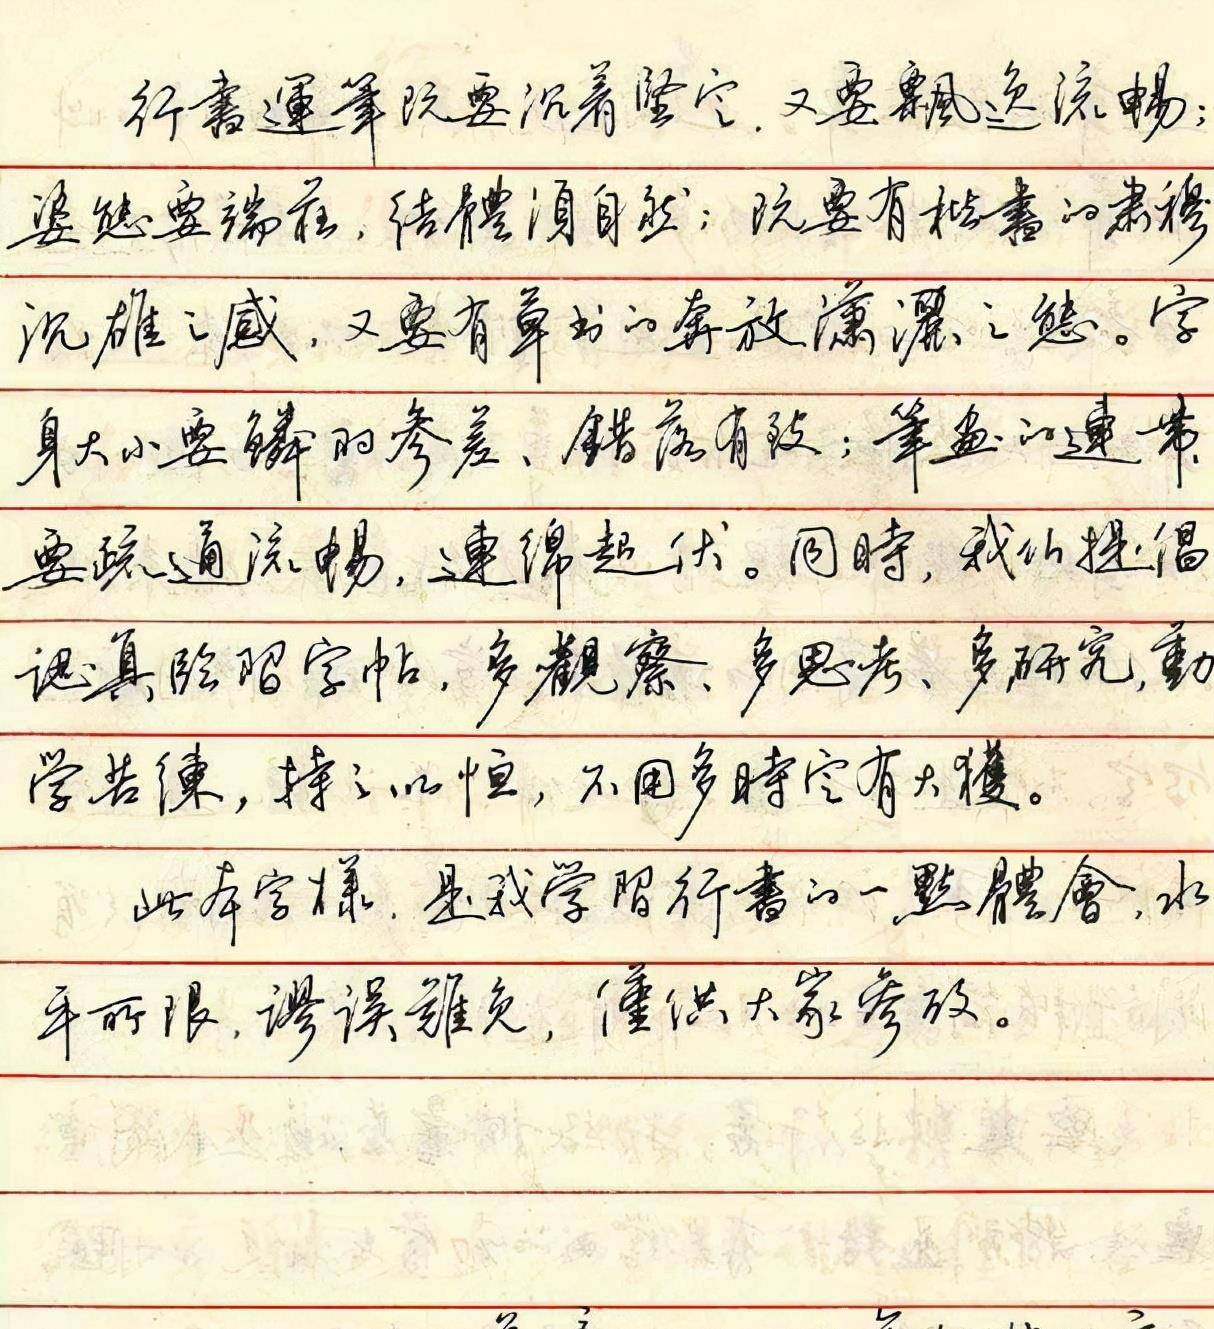 行書運筆既要沉着堅定，又要飄逸流暢；
姿態要端莊，結體須自然；既要有楷書的肅穆
沉雄之感，又要有草书的奔放瀟灑之態。字
身大小要鱗的參差、錯落有致；筆画的連帶
要疏通流暢，連綿起伏。同時，我们提倡
認真臨習字帖，多觀察、多思考、多研究，勤
学苦練，持之以恒，不用多時定有大獲。
此本字樣，是我学習行書的一點體會，水
平所限，謬誤難免，僅供大家參攷。